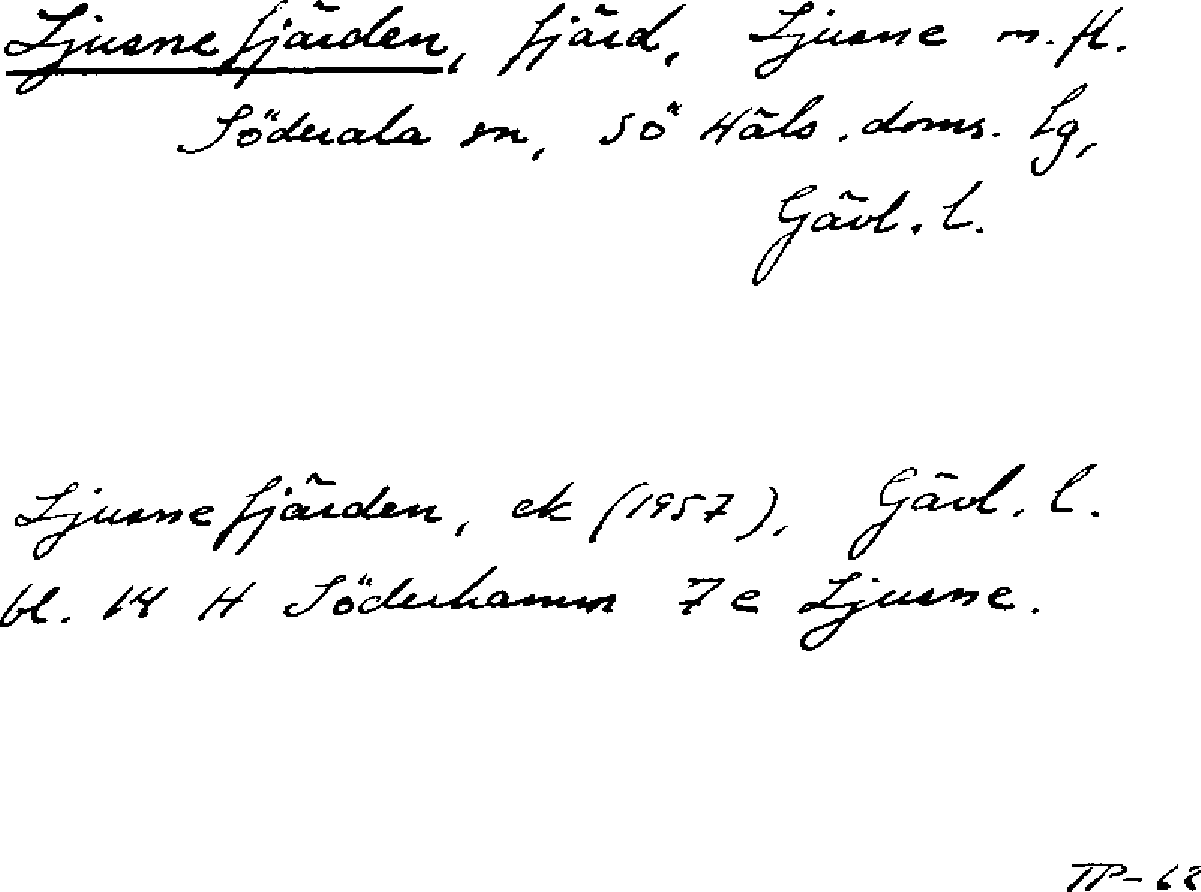 Ljusnefjärden, fjärd, Ljusne m.fl.
Söderala sn, Sö Häls. doms. lg,
Gävl. l.
Ljusnefjärden, ek (1957), Gävl. l.
bl. 14 H Söderhamn 7 e Ljusne.
TP-62